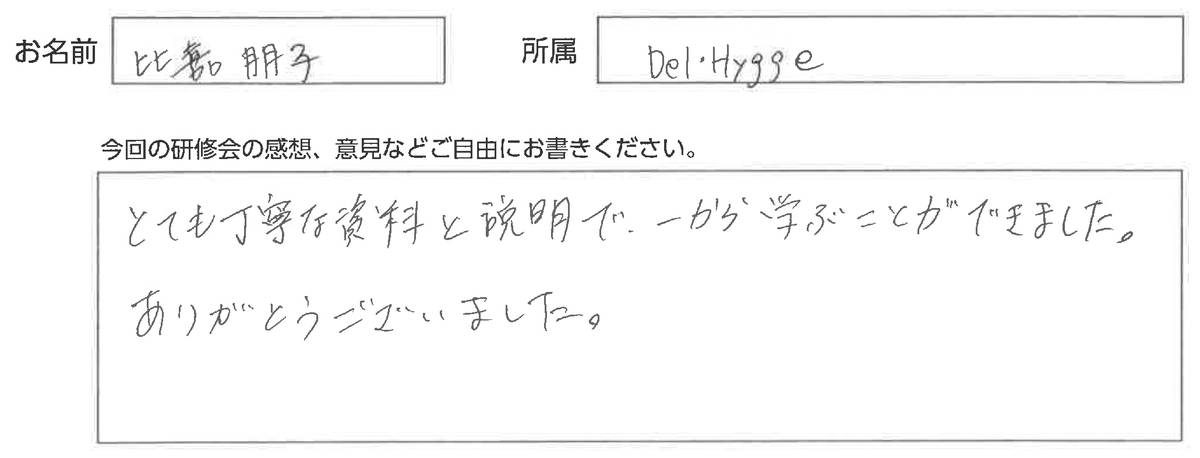 お名前 比嘉 朋子 所属 Del・Hygge
今回の研修会の感想、意見などご自由にお書きください。
とても丁寧な資料と説明で、一から学ぶことができました。
ありがとうございました。